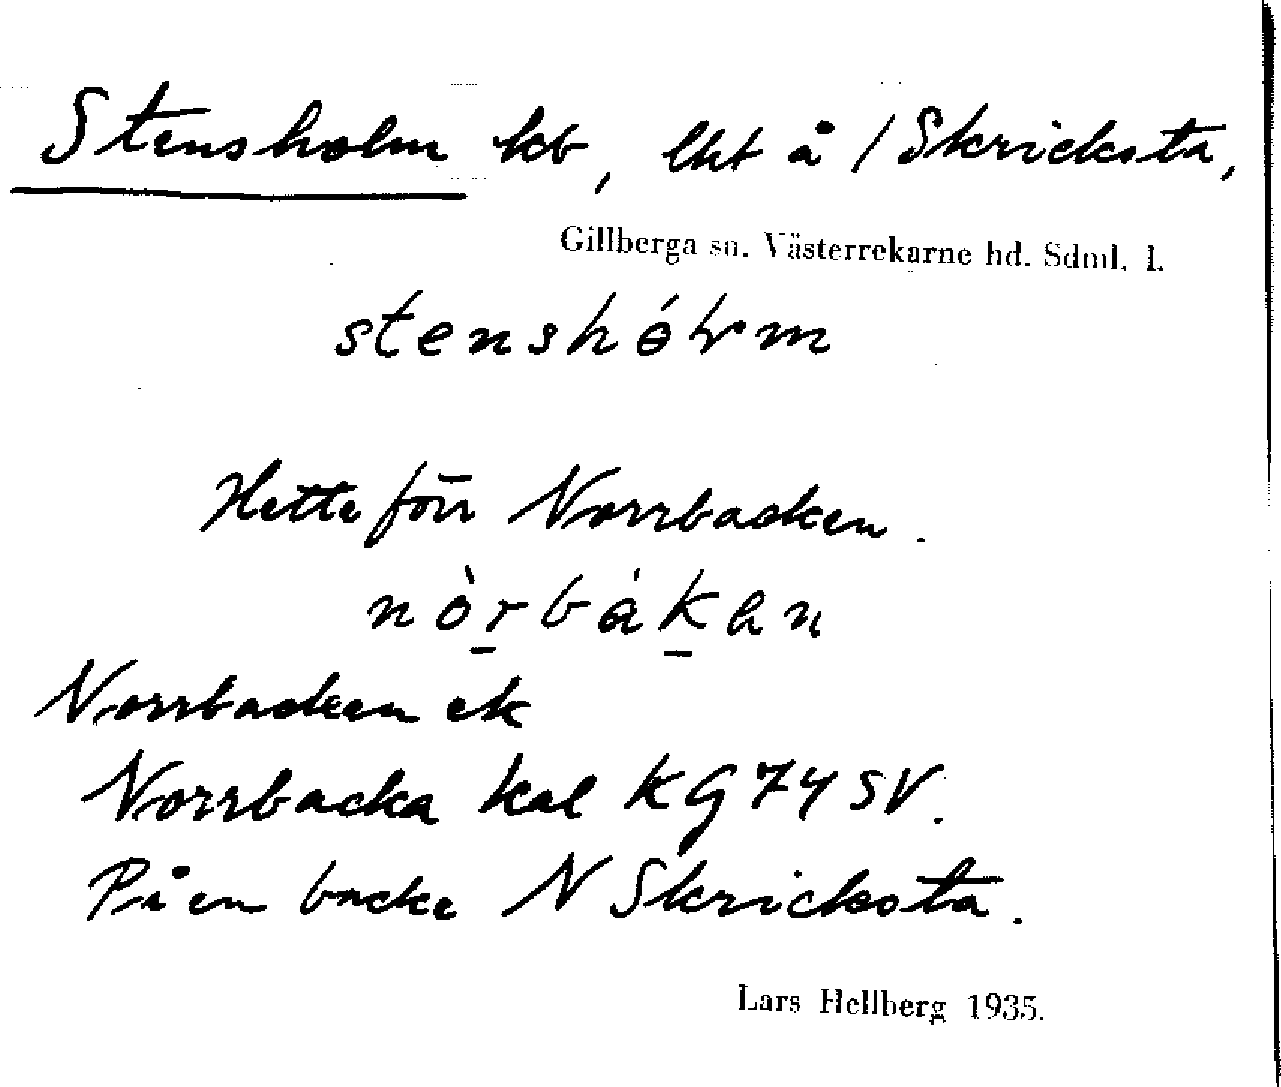 Stensholm kb, lht å / Skricksta,
Gillberga sn. Västerrekarne hd. Södml. l.
stenshólm
Hette förr Norrbacken.
nòrbákan
Norrbacken ek
Norrbacka kal KG 74 SV.
På en backe N Skricksta.
Lars Hellberg 1935.